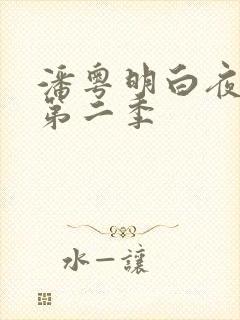 潘粤明白夜
第二季
水一讓